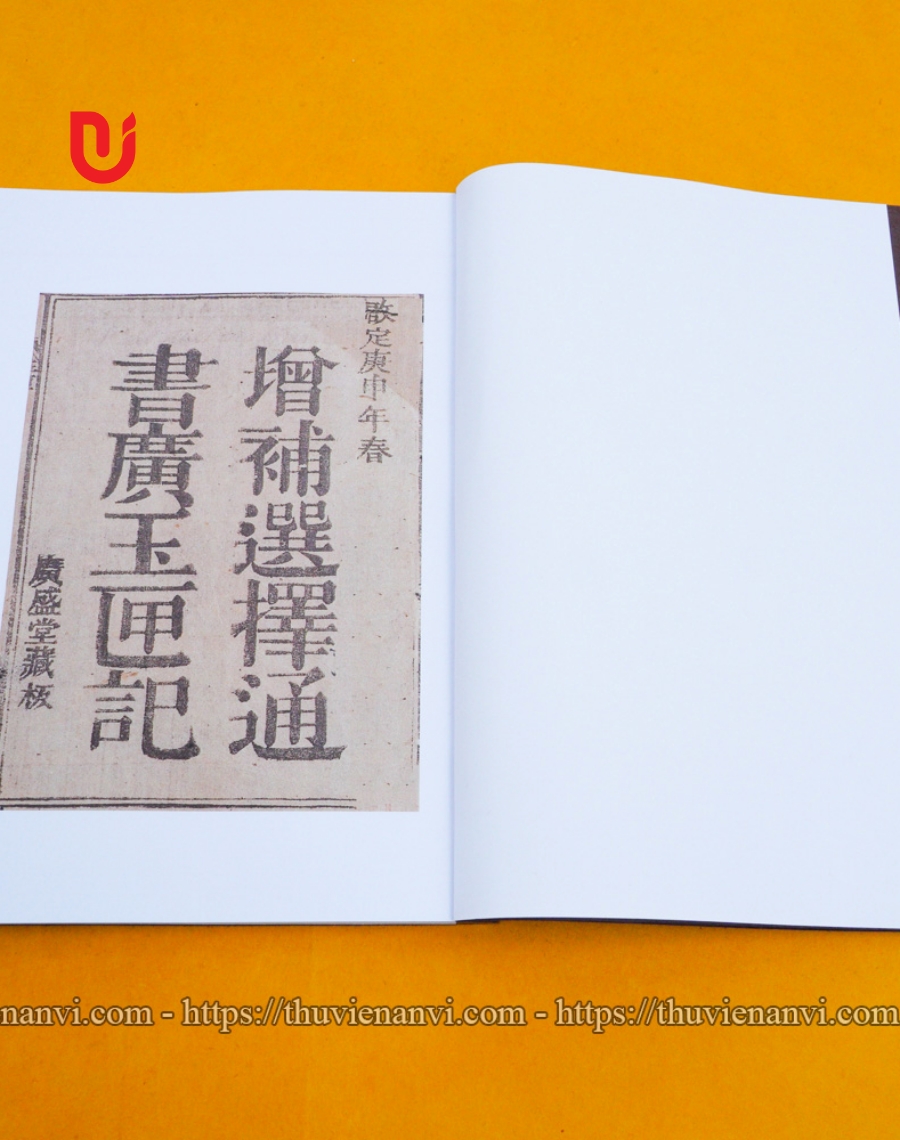 改定庚申年春
增補選擇通
書廣玉匣記
廣盛堂藏板
nanvi.com - https://thuvienanvi.com - https://thuvienanvi.com